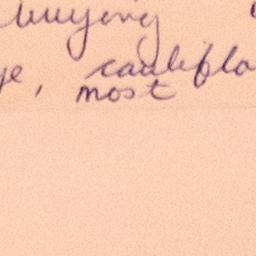 buying
ge, cauliflo
most